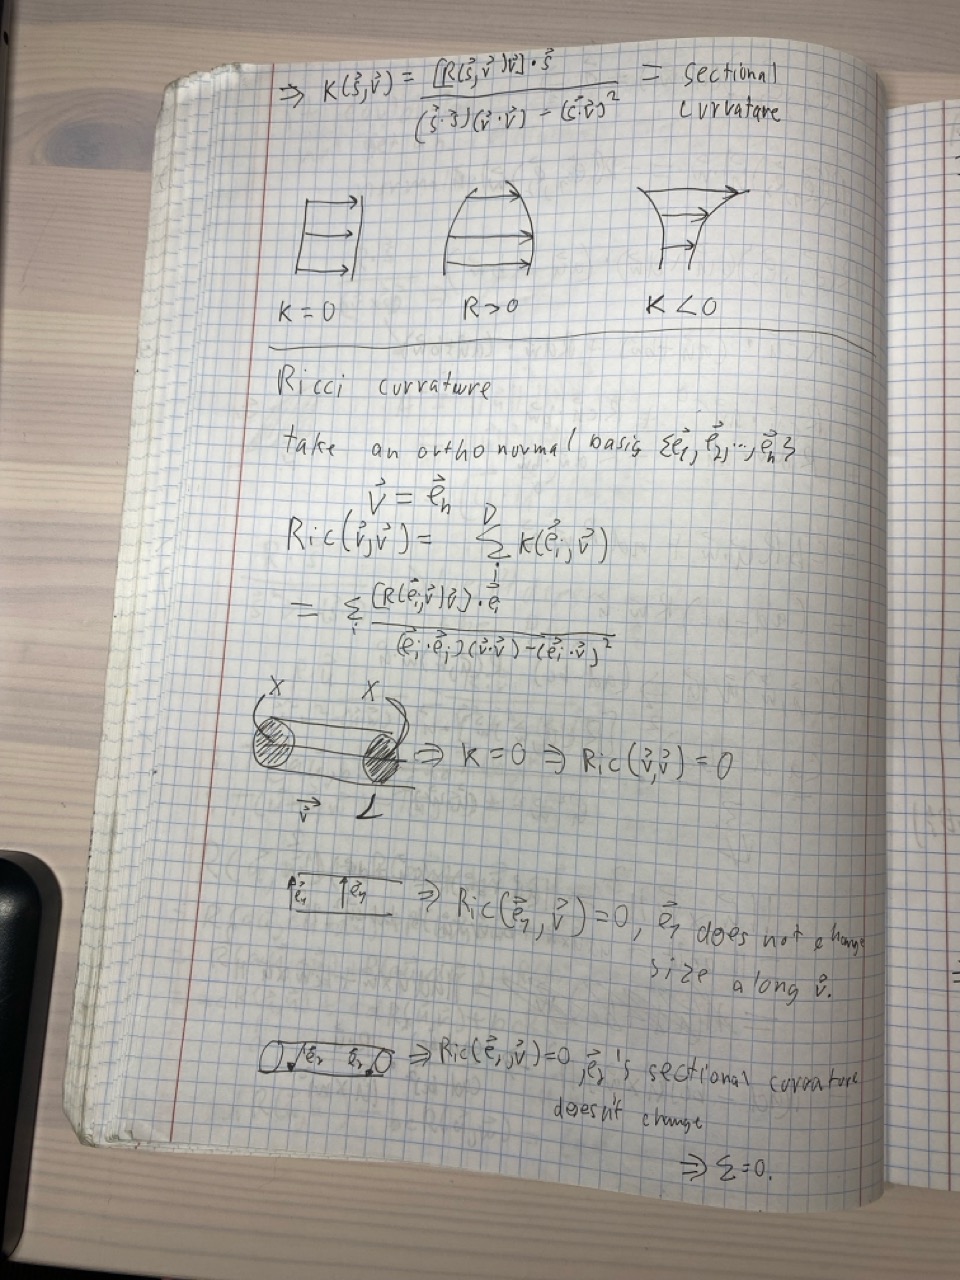 ⇒ K(s⃗,v⃗) = [R(s⃗,v⃗)v⃗]·s⃗ / (s⃗·s⃗)(v⃗·v⃗) - (s⃗·v⃗)² = sectional
curvature
K = 0 R>0 K<0
Ricci curvature
take an orthonormal basis {e⃗₁, e⃗₂, ..., e⃗ₙ}
v⃗ = e⃗ₙ
Ric(v⃗,v⃗) = Σᵢᴰ K(e⃗ᵢ,v⃗)
= Σᵢ [R(e⃗ᵢ,v⃗)v⃗]·e⃗ᵢ / (e⃗ᵢ·e⃗ᵢ)(v⃗·v⃗) - (e⃗ᵢ·v⃗)²
X X
⇒ K = 0 ⇒ Ric(v⃗,v⃗) = 0
v⃗ L
e⃗₁ e⃗₁ ⇒ Ric(e⃗₁,v⃗) = 0, e⃗₁ does not change
size along v⃗.
e⃗₂ e⃗₂ ⇒ Ric(e⃗₂,v⃗) = 0, e⃗₂'s sectional curvature
doesn't change
⇒ Σ = 0.